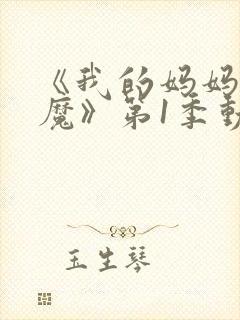 《我的妈妈
魔》第1季動
玉生琴